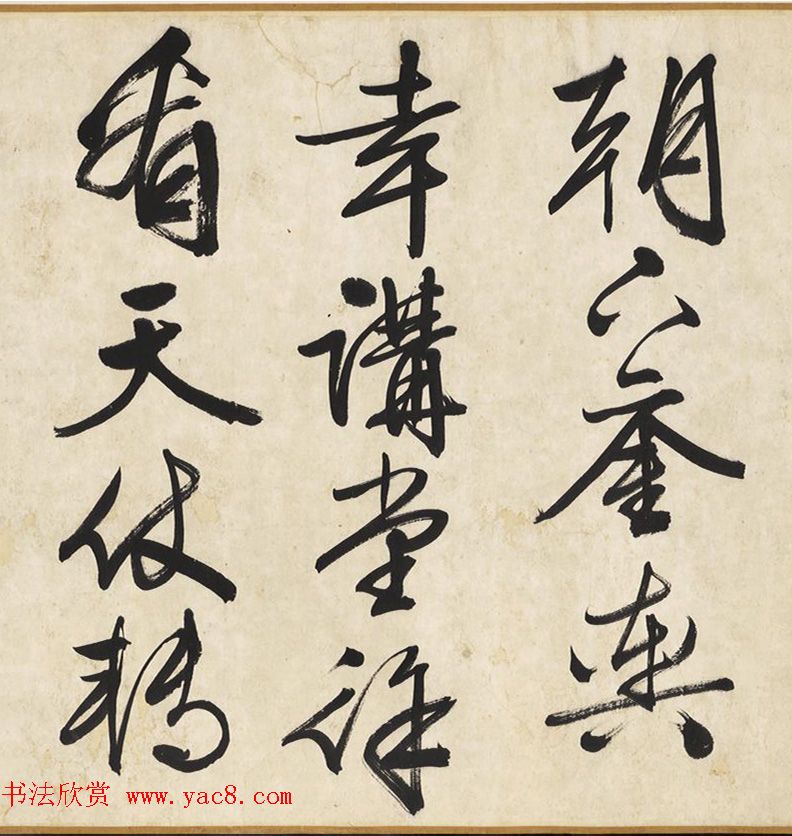 朝下輿
幸講堂徐
看天仗轉
书法欣赏 www.yac8.com